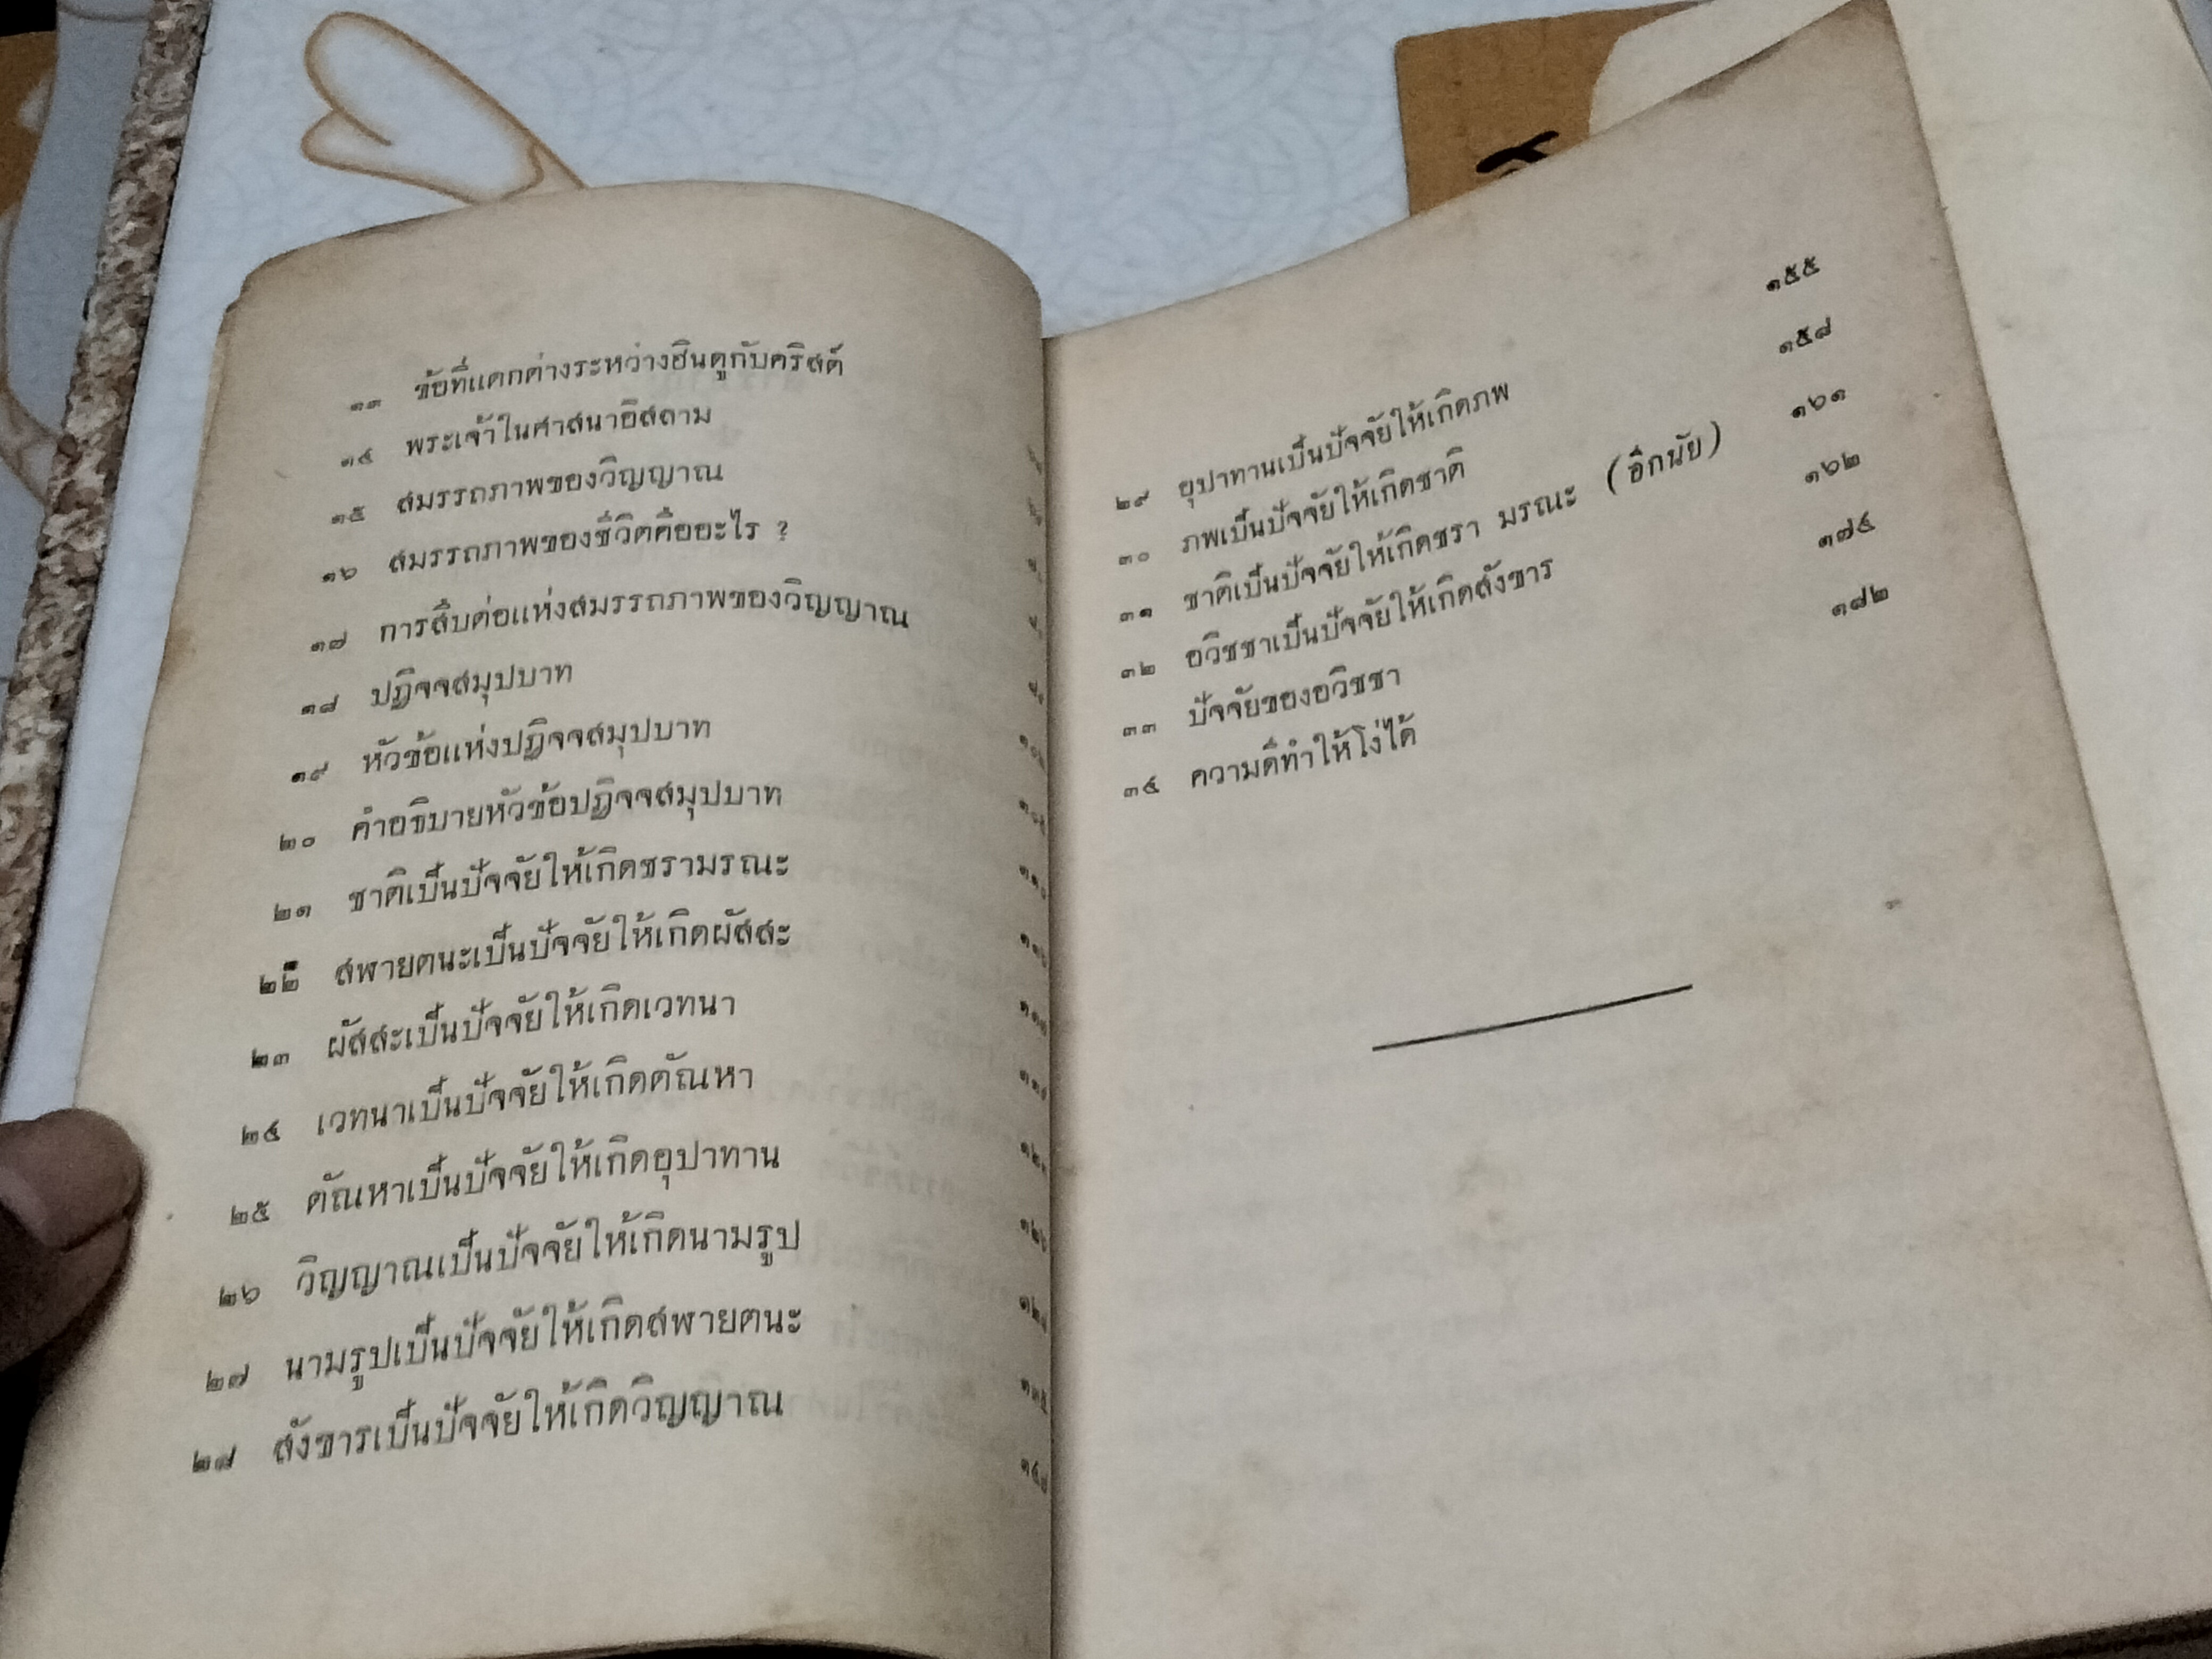 ๑๓ ข้อที่แตกต่างระหว่างฮินดูกับคริสต์
๑๔ พระเจ้าในศาสนาอิสลาม
๑๕ สมรรถภาพของวิญญาณ
๑๖ สมรรถภาพของชีวิตคืออะไร ?
๑๗ การสืบต่อแห่งสมรรถภาพของวิญญาณ
๑๘ ปฏิจจสมุปบาท
๑๙ หัวข้อแห่งปฏิจจสมุปบาท
๒๐ คำอธิบายหัวข้อปฏิจจสมุปบาท
๒๑ ชาติเป็นปัจจัยให้เกิดชรามรณะ
๒๒ สฬายตนะเป็นปัจจัยให้เกิดผัสสะ
๒๓ ผัสสะเป็นปัจจัยให้เกิดเวทนา
๒๔ เวทนาเป็นปัจจัยให้เกิดตัณหา
๒๕ ตัณหาเป็นปัจจัยให้เกิดอุปาทาน
๒๖ วิญญาณเป็นปัจจัยให้เกิดนามรูป
๒๗ นามรูปเป็นปัจจัยให้เกิดสฬายตนะ
๒๘ สังขารเป็นปัจจัยให้เกิดวิญญาณ
๒๙ อุปาทานเป็นปัจจัยให้เกิดภพ ๑๕๕
๓๐ ภพเป็นปัจจัยให้เกิดชาติ ๑๕๘
๓๑ ชาติเป็นปัจจัยให้เกิดชรา มรณะ (อีกนัย) ๑๖๑
๓๒ อวิชชาเป็นปัจจัยให้เกิดสังขาร ๑๖๒
๓๓ ปัจจัยของอวิชชา ๑๗๔
๓๔ ความดีทำให้โง่ได้ ๑๘๒